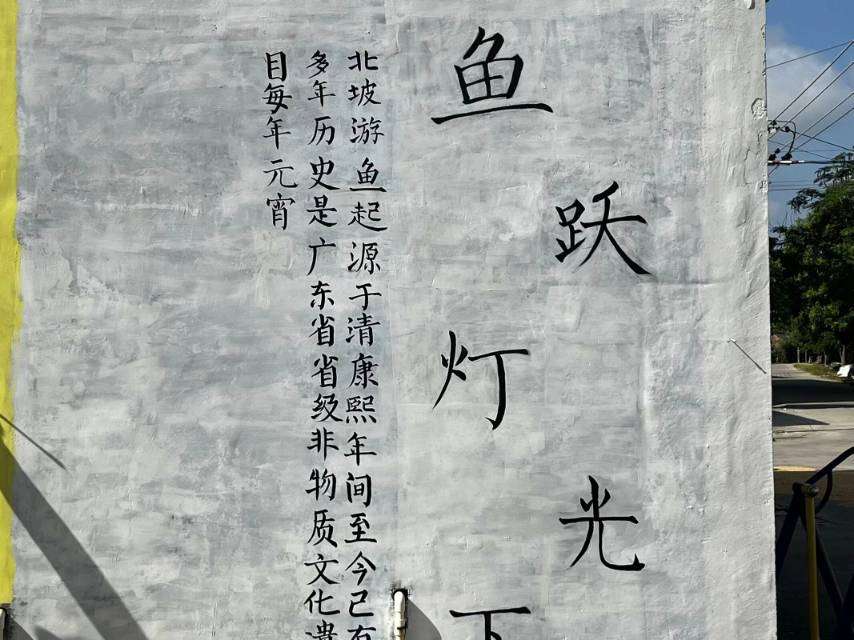 鱼跃灯光
北坡游鱼起源于清康熙年间至今已有
多年历史是广东省省级非物质文化遗
目每年元宵